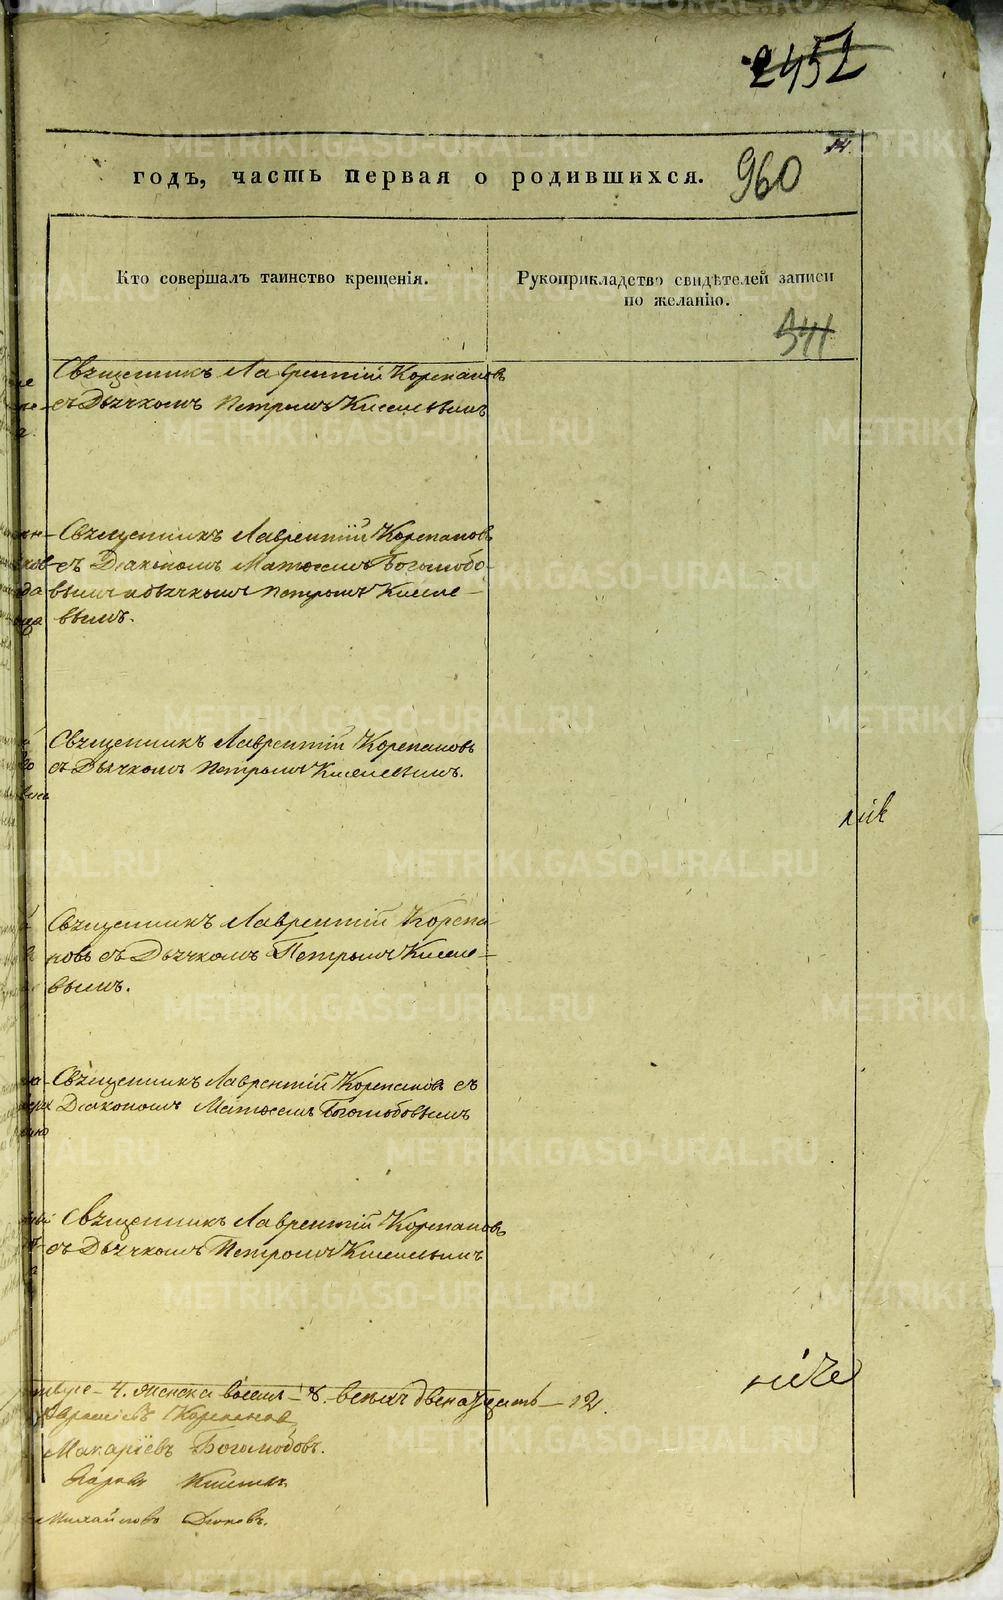 2452
14.
годъ, часть первая о родившихся. 960
Кто совершалъ таинство крещенія.
Рукоприкладство свидѣтелей записи
по желанію.
341
Священникъ Лаврентій Корепановъ
съ Дьячкомъ Петромъ Киселевымъ
Священникъ Лаврентій Корепановъ
съ Діакономъ Матвеемъ Боголюбо-
вымъ и дьячкомъ Петромъ Кисле-
вымъ.
Священникъ Лаврентій Корепановъ
съ Дьячкомъ Петромъ Киселевымъ.
Священникъ Лаврентій Корепа-
новъ съ Дьячкомъ Петромъ Кисле-
вымъ.
Священникъ Лаврентій Корепановъ съ
Діакономъ Матвеемъ Боголюбовымъ
Священникъ Лаврентій Корепановъ
съ Дьячкомъ Петромъ Киселевымъ
4. женска восемь 8. всехъ двенадцать 12.
Корепановъ
Макаріевъ Боголюбовъ.
METRIKI.GASO-URAL.RU